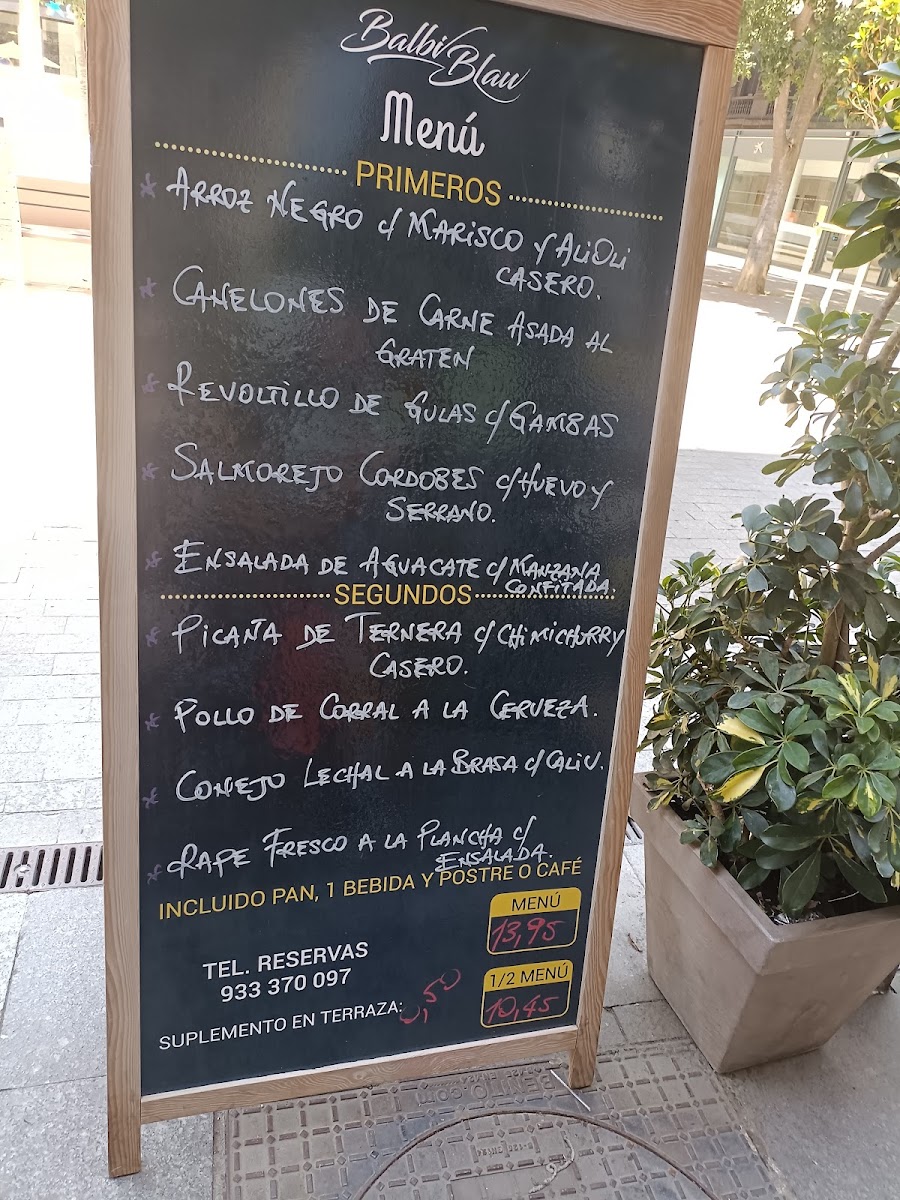 Balbi Blau
Menú
PRIMEROS
* ARROZ NEGRO c/ MARISCO Y ALiOLi
CASERO.
* CANELONES DE CARNE ASADA AL
GRATEN
* REVOLTILLO DE GULAS c/ GAMBAS
* SALMOREJO CORDOBES c/ HUEVO Y
SERRANO.
* ENSALADA DE AGUACATE c/ MANZANA
CONFITADA.
SEGUNDOS
* PICAÑA DE TERNERA c/ CHIMICHURRY
CASERO.
* POLLO DE CORRAL A LA CERVEZA.
* CONEJO LECHAL A LA BRASA c/ CALIU.
* RAPE FRESCO A LA PLANCHA c/
ENSALADA.
INCLUIDO PAN, 1 BEBIDA Y POSTRE O CAFÉ
MENÚ
13,95
TEL. RESERVAS
933 370 097
1/2 MENÚ
10,45
SUPLEMENTO EN TERRAZA: 0,50